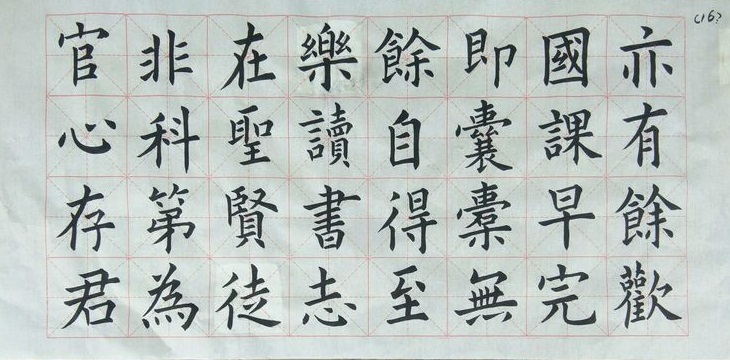 亦有餘歡
國課早完
即囊橐無
餘自得至
樂讀書志
在聖賢徒
非科第為
官心存君
(16)